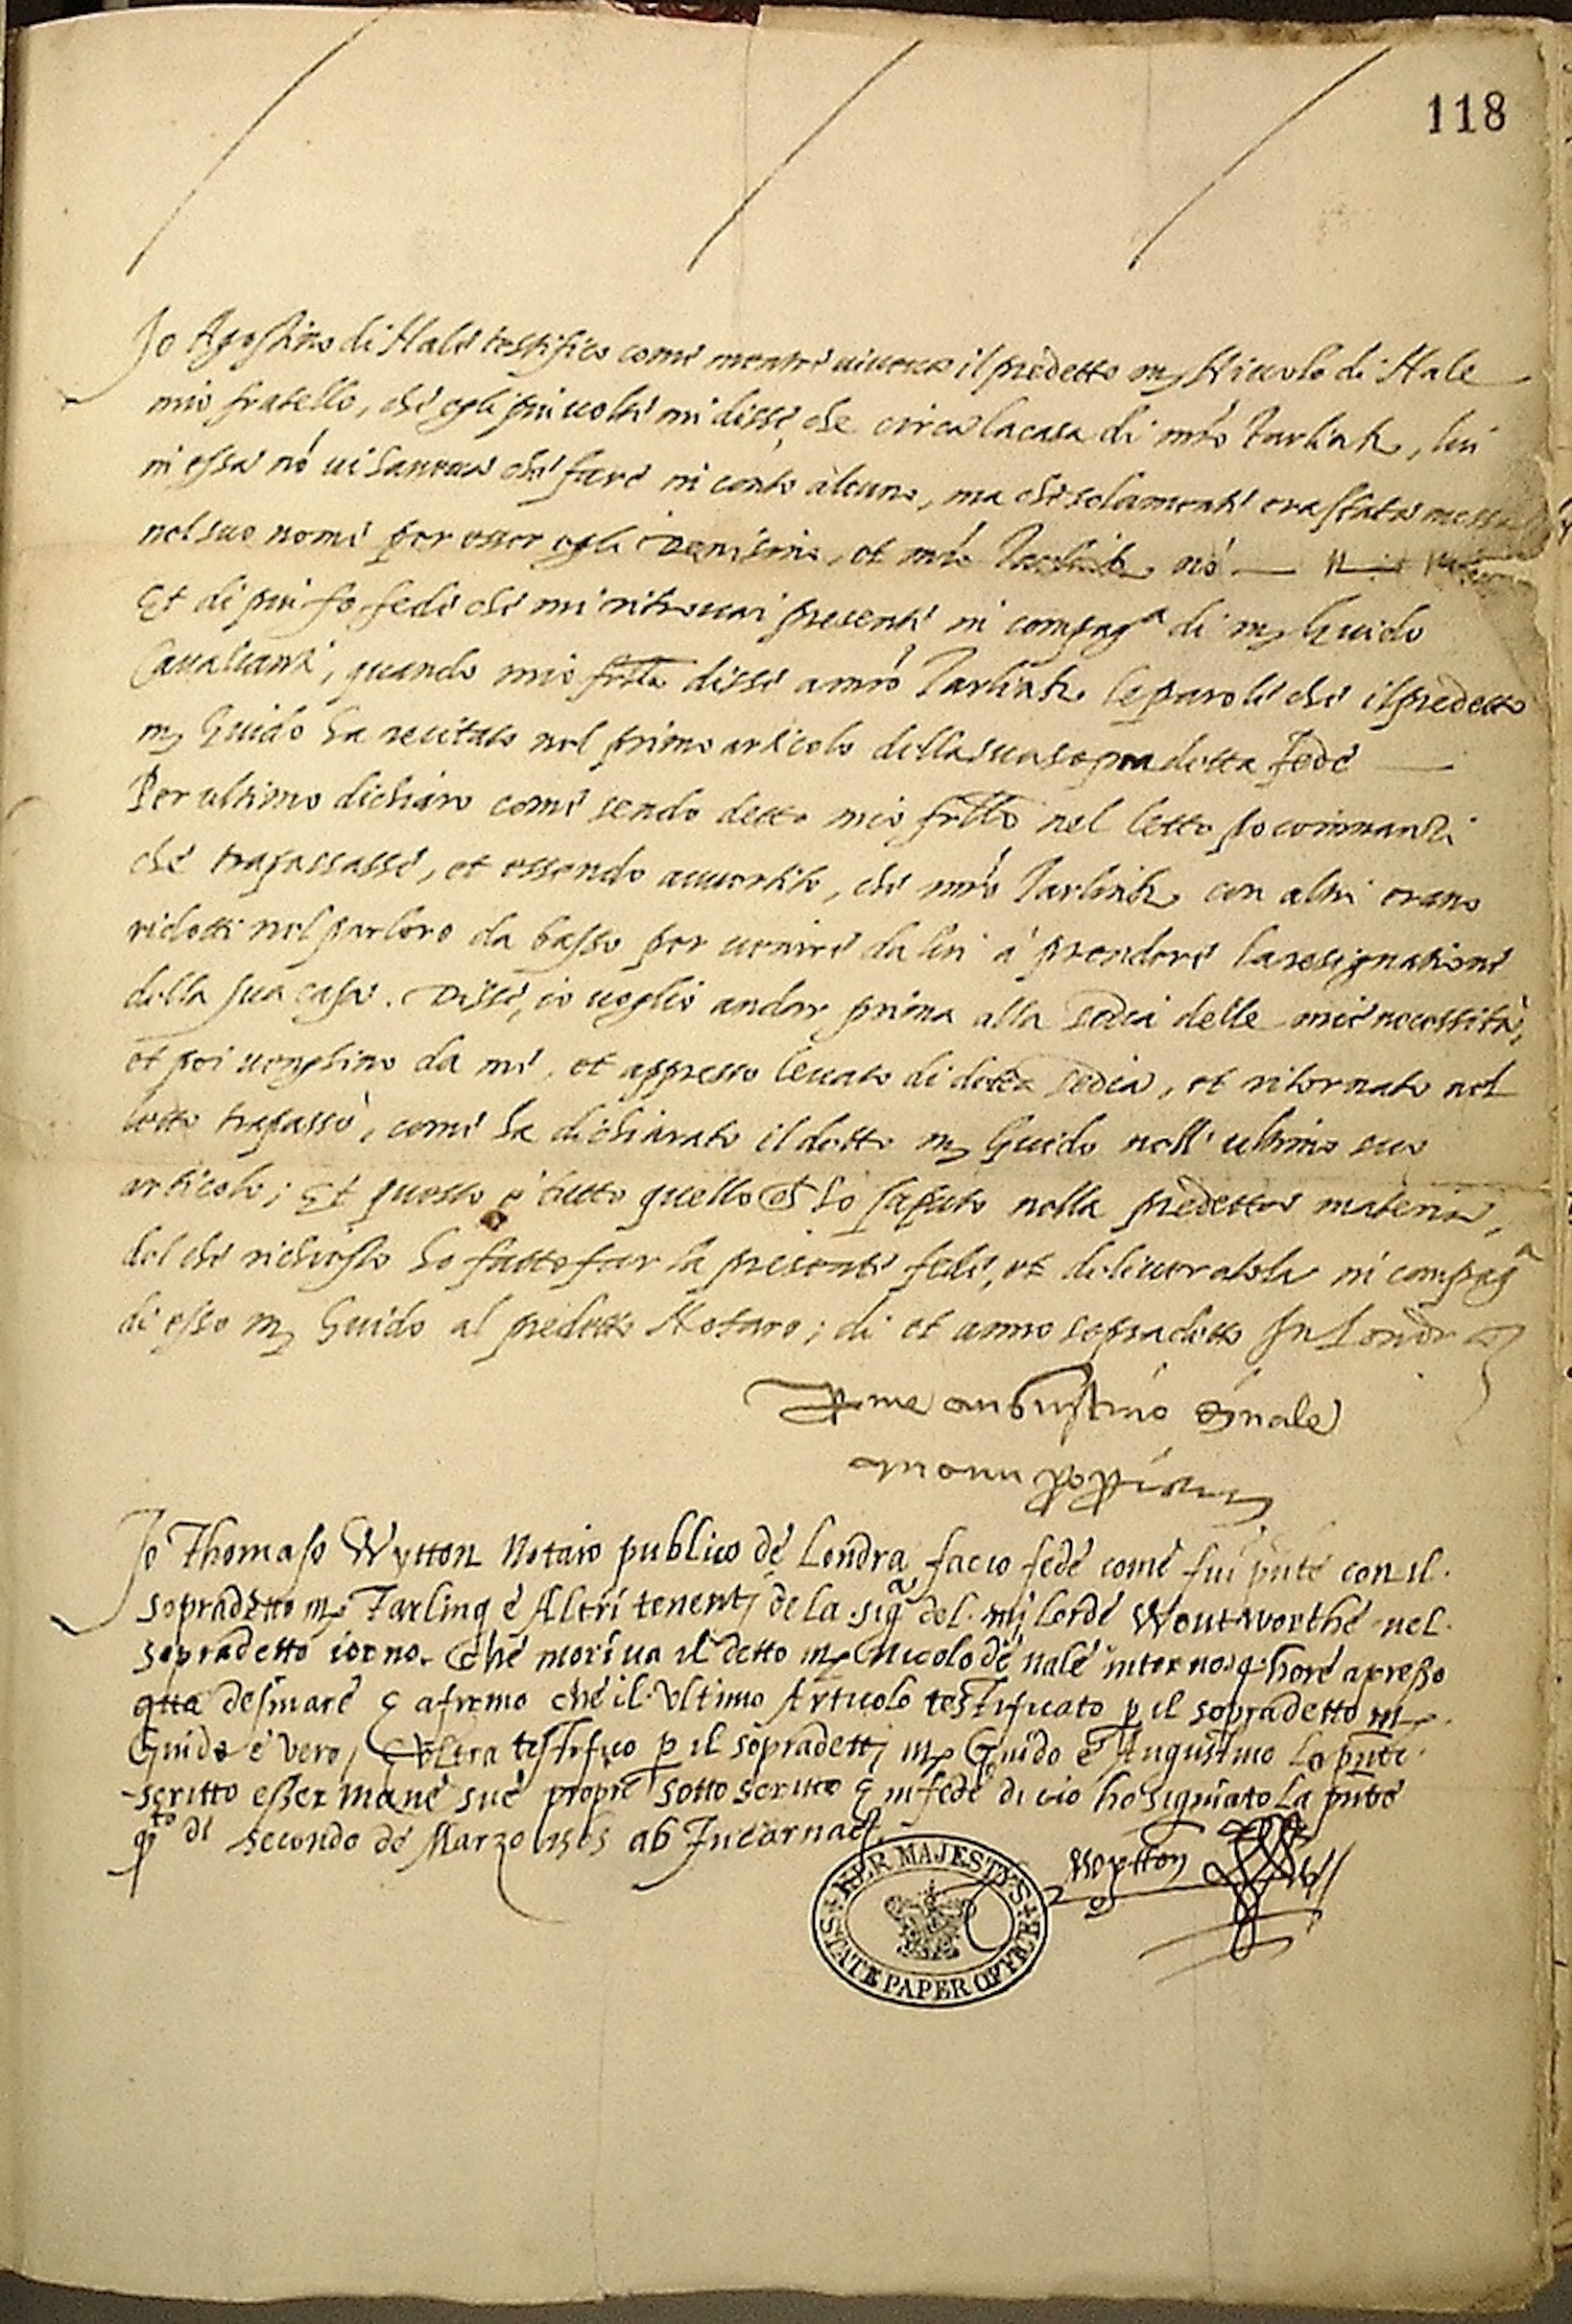 118
Io Agostino di Nale testifico come mentre viveva il predetto m Niccolo di Nale
mio fratello, che egli piu volte mi disse, che circa la casa di mro Tarlink, lui
in essa nõ vi haveva che fare in conto alcuno, ma che solamente era stata messa
nel suo nome per esser egli et mro Tarlink nõ
Et di piu fo fede che mi ritrovai presente in compagª di m Guido
Cavalcanti, quando mio frtło disse a mro Tarlink le parole che il predetto
m Guido ha recitato nel primo articolo della sua sopradetta fede
Per ultimo dichiaro come sendo detto mio frtło nel letto poco innanzi
che trapassasse, et essendo avvertito, che mro Tarlink con altri erano
ridotti nel parloro da basso per venire da lui à prendere la resignatione
della sua casa. Disse, io voglio andar prima alla sedia delle mie necessità,
et poi venghino da me, et appresso levato di detta sedia, et ritornato nel
letto trapassò, come ha dichiarato il detto m Guido nell' ultimo suo
articolo; Et questo è tutto quello ch ho saputo nella predetta materia,
del che richiesto ho fatto far la presente fede, et deliveratola in compagª
di esso m Guido al predetto Notaro; di et anno sopradetto In Londra
manu propria
Io Thomaso Wytton Notaio publico de Londra facio fede come fui pñte con il
sopradetto m Tarling e Altri tenenti de la sigª del mi lorde Wentworthe nel
sopradetto iorno che moriva il detto m Nicolo de nale intorno 4 hore apresso
desinare & afirmo che il Ultimo Articolo testificato p il sopradetto m
Guido e vero, & Ultra testifico p il sopradetti m Guido e Augustino la pñte
scritto esser mane sue proprie sotto scritto & in fede di cio ho signiato la pñte
qto di secondo de Marzo 1565 ab Incarnac
Wytton
HER MAJESTY'S STATE PAPER OFFICE